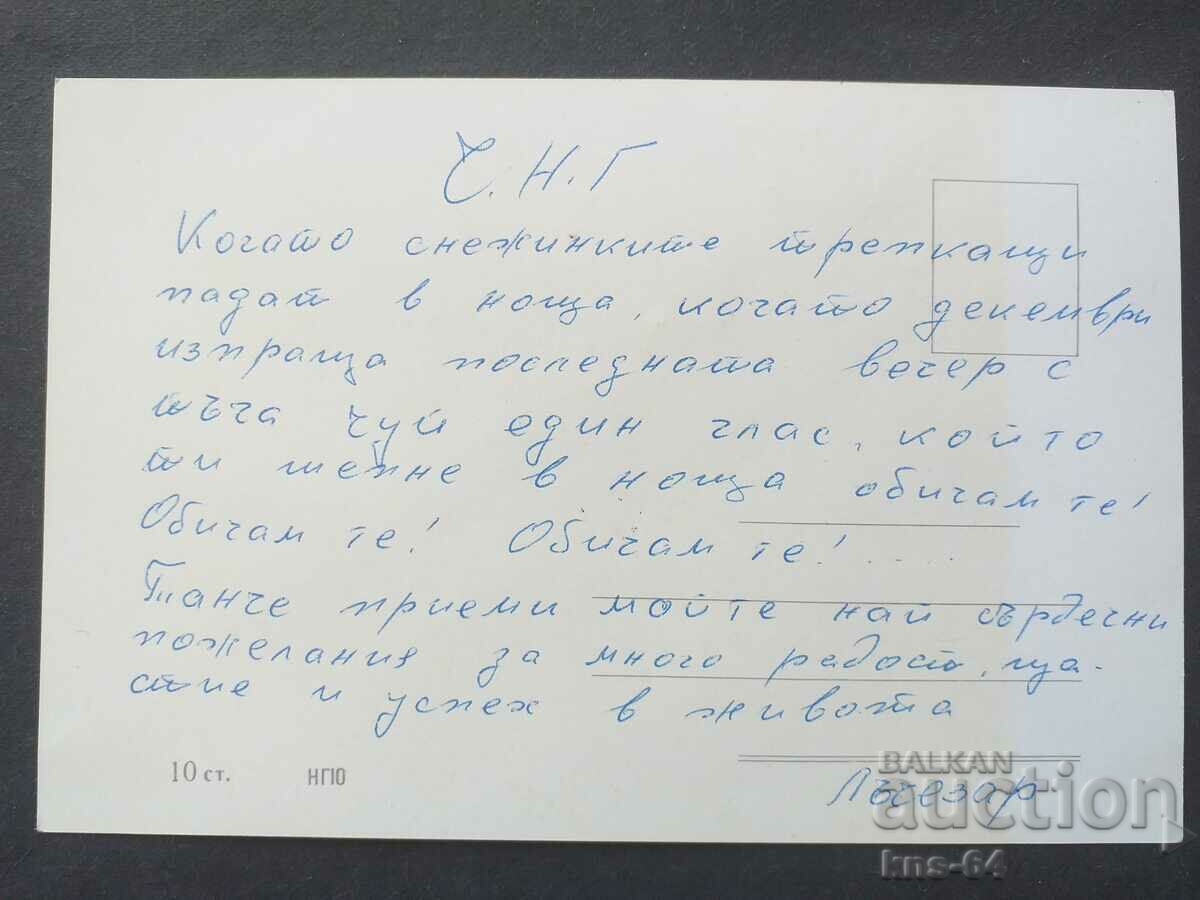 Ч.Н.Г
Когато снежинките трепкащи
падат в ноща, когато декември
изпраща последната вечер с
тъга чуй един глас, който
ти шепне в ноща обичам те!
Обичам те! Обичам те!....
Танче приеми мойте най сърдечни
пожелания за много радост, ща-
стие и успех в живота
Лъчезар
10 ст. НГЮ
BALKAN
auction
kns-64